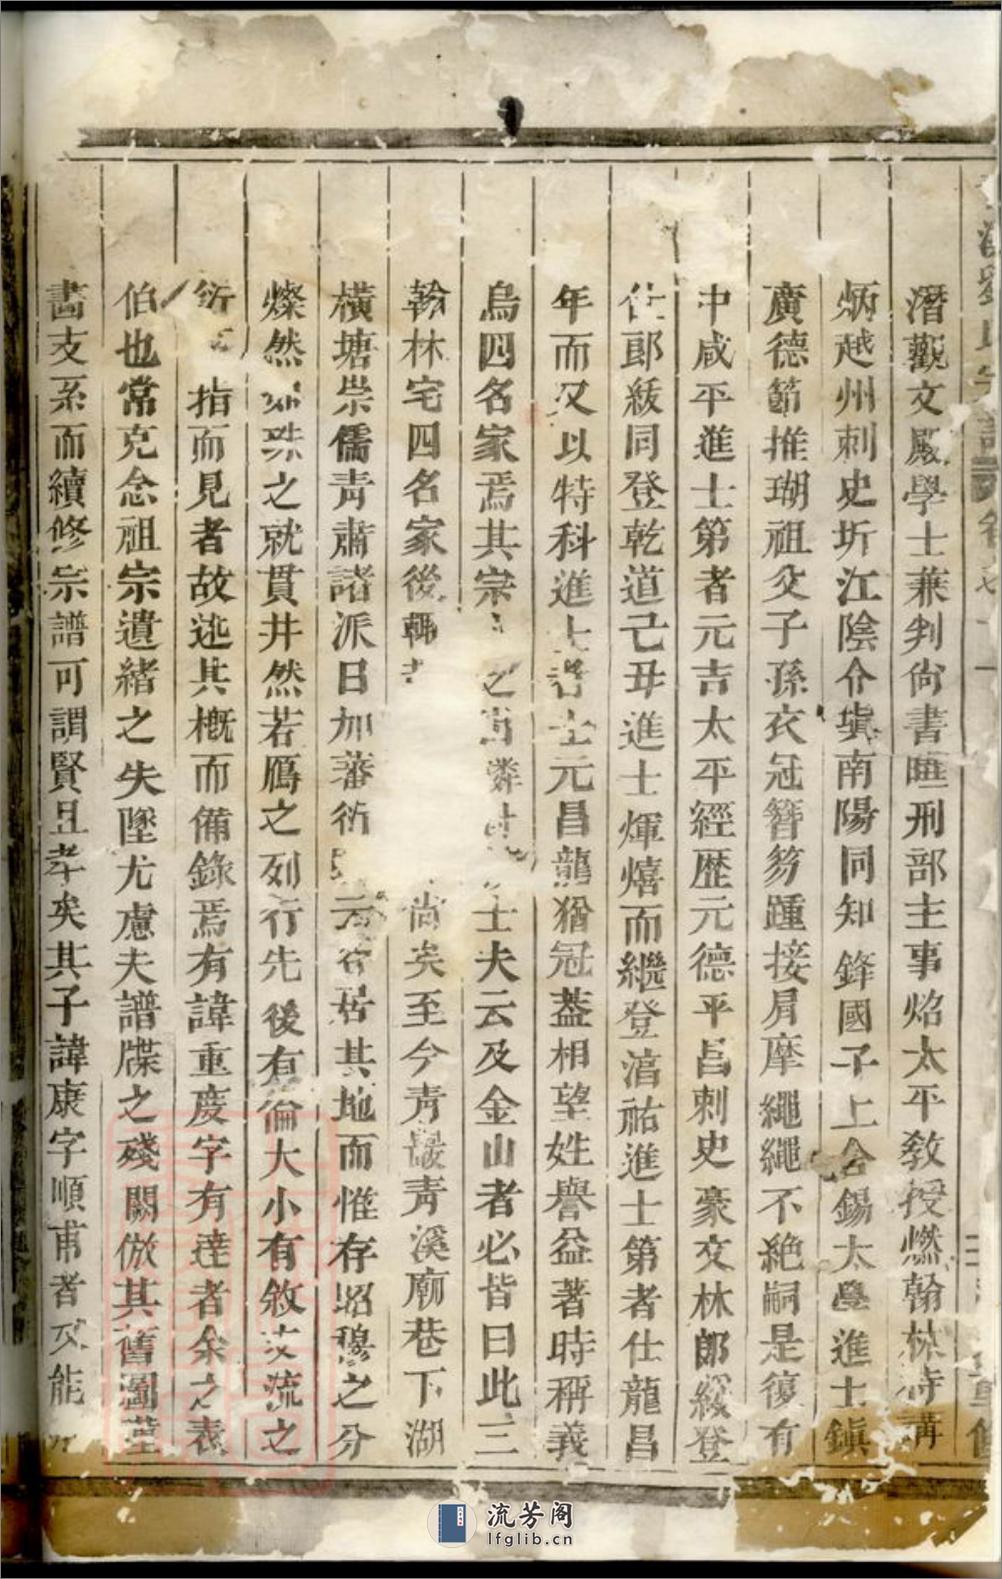 潛觀文殿學士兼判尚書暄刑部主事焰太平教授燃翰林侍講
炳越州刺史圻江陰令塤南陽同知鋒國子上舍錫太學進士鎮
廣德節推瑚祖父子孫衣冠簪笏踵接肩摩繩繩不絶嗣是復有
中咸平進士第者元吉太平經歷元德平昌刺史豪文林郎綬登
仕郎紱同登乾道己丑進士煇熺而繼登淳祐進士第者仕龍昌
年而又以特科進士者士元昌龍猶冠葢相望姓譽益著時稱義
烏四名家焉其宗之士夫云及金山者必皆曰此三
翰林宅四名家後尚矣至今青巖青溪廟巷下湖
橫塘崇儒青肅諸派日加蕃衍居其地而惟存昭穆之分
燦然如珠之就貫井然若鴈之列行先後有倫大小有敘支流之
衍指而見者故述其概而備錄焉有諱重慶字有達者余之表
伯也常克念祖宗遺緒之失墜尤慮夫譜牒之殘闕倣其舊圖
畵支系而續修宗譜可謂賢且孝矣其子諱康字順甫者又能
流芳阁
lfglib.cn